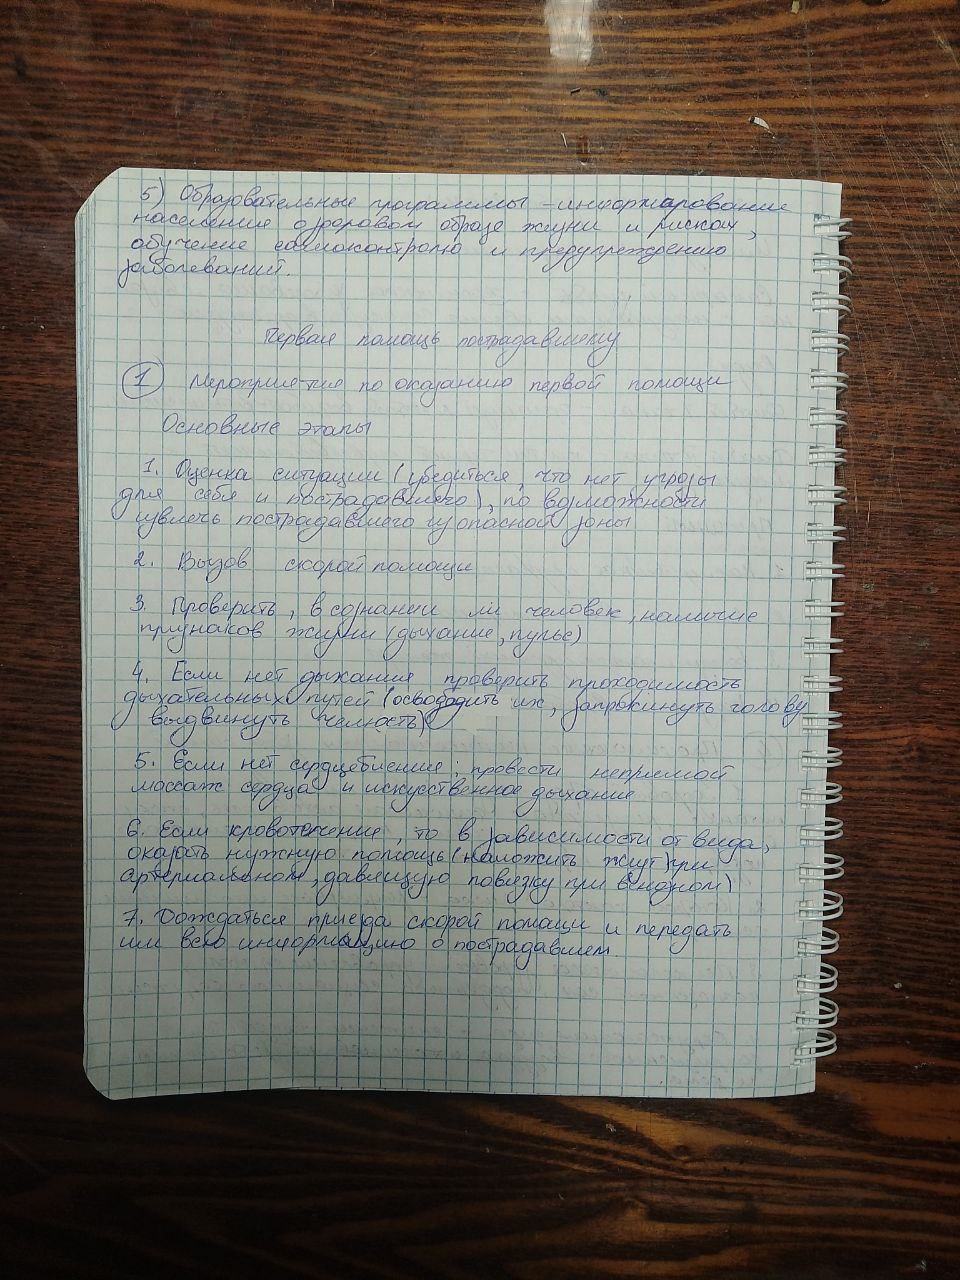 5) Образовательные программы - информирование
население о здоровом образе жизни и рисках,
обучение самоконтролю и предупреждению
заболеваний.
Первая помощь пострадавшему
1 Мероприятия по оказанию первой помощи
Основные этапы
1. Оценка ситуации (убедиться, что нет угрозы
для себя и пострадавшего), по возможности
извлечь пострадавшего из опасной зоны
2. Вызов скорой помощи
3. Проверить, в сознании ли человек, наличие
признаков жизни (дыхание, пульс)
4. Если нет дыхания проверить проходимость
дыхательных путей (освободить их, запрокинуть голову
выдвинуть челюсть)
5. Если нет сердцебиения: провести непрямой
массаж сердца и искусственное дыхание
6. Если кровотечение, то в зависимости от вида,
оказать нужную помощь (наложить жгут) при
артериальном, давящую повязку при венозном)
7. Дождаться приезда скорой помощи и передать
им всю информацию о пострадавшем.